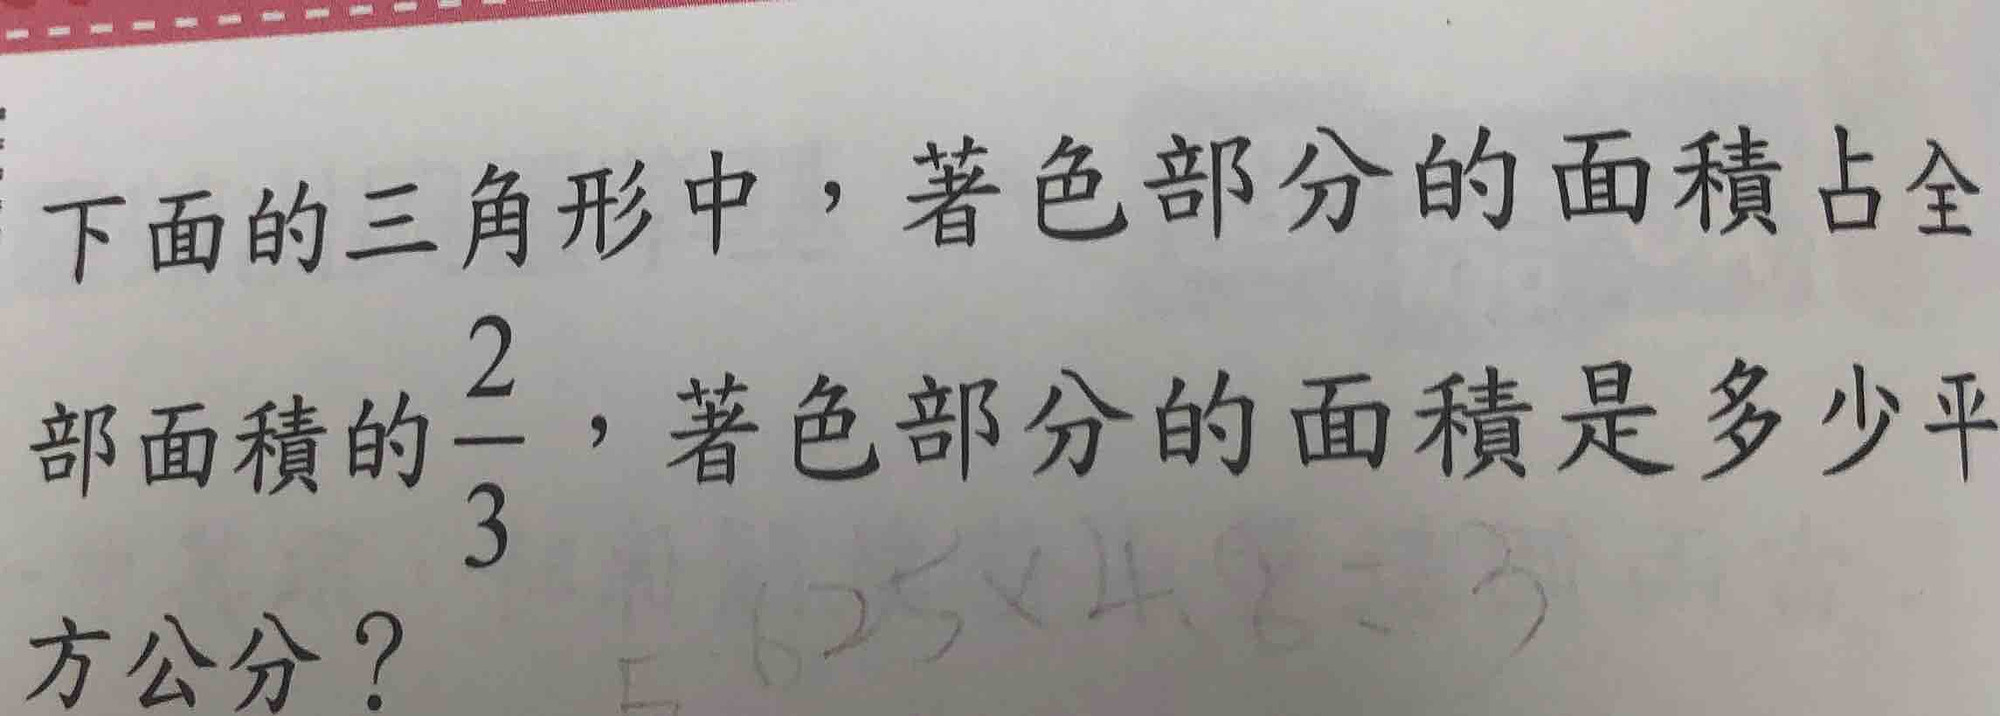 下面的三角形中，著色部分的面積占全
部面積的2/3，著色部分的面積是多少平
方公分？
625×4.8÷3